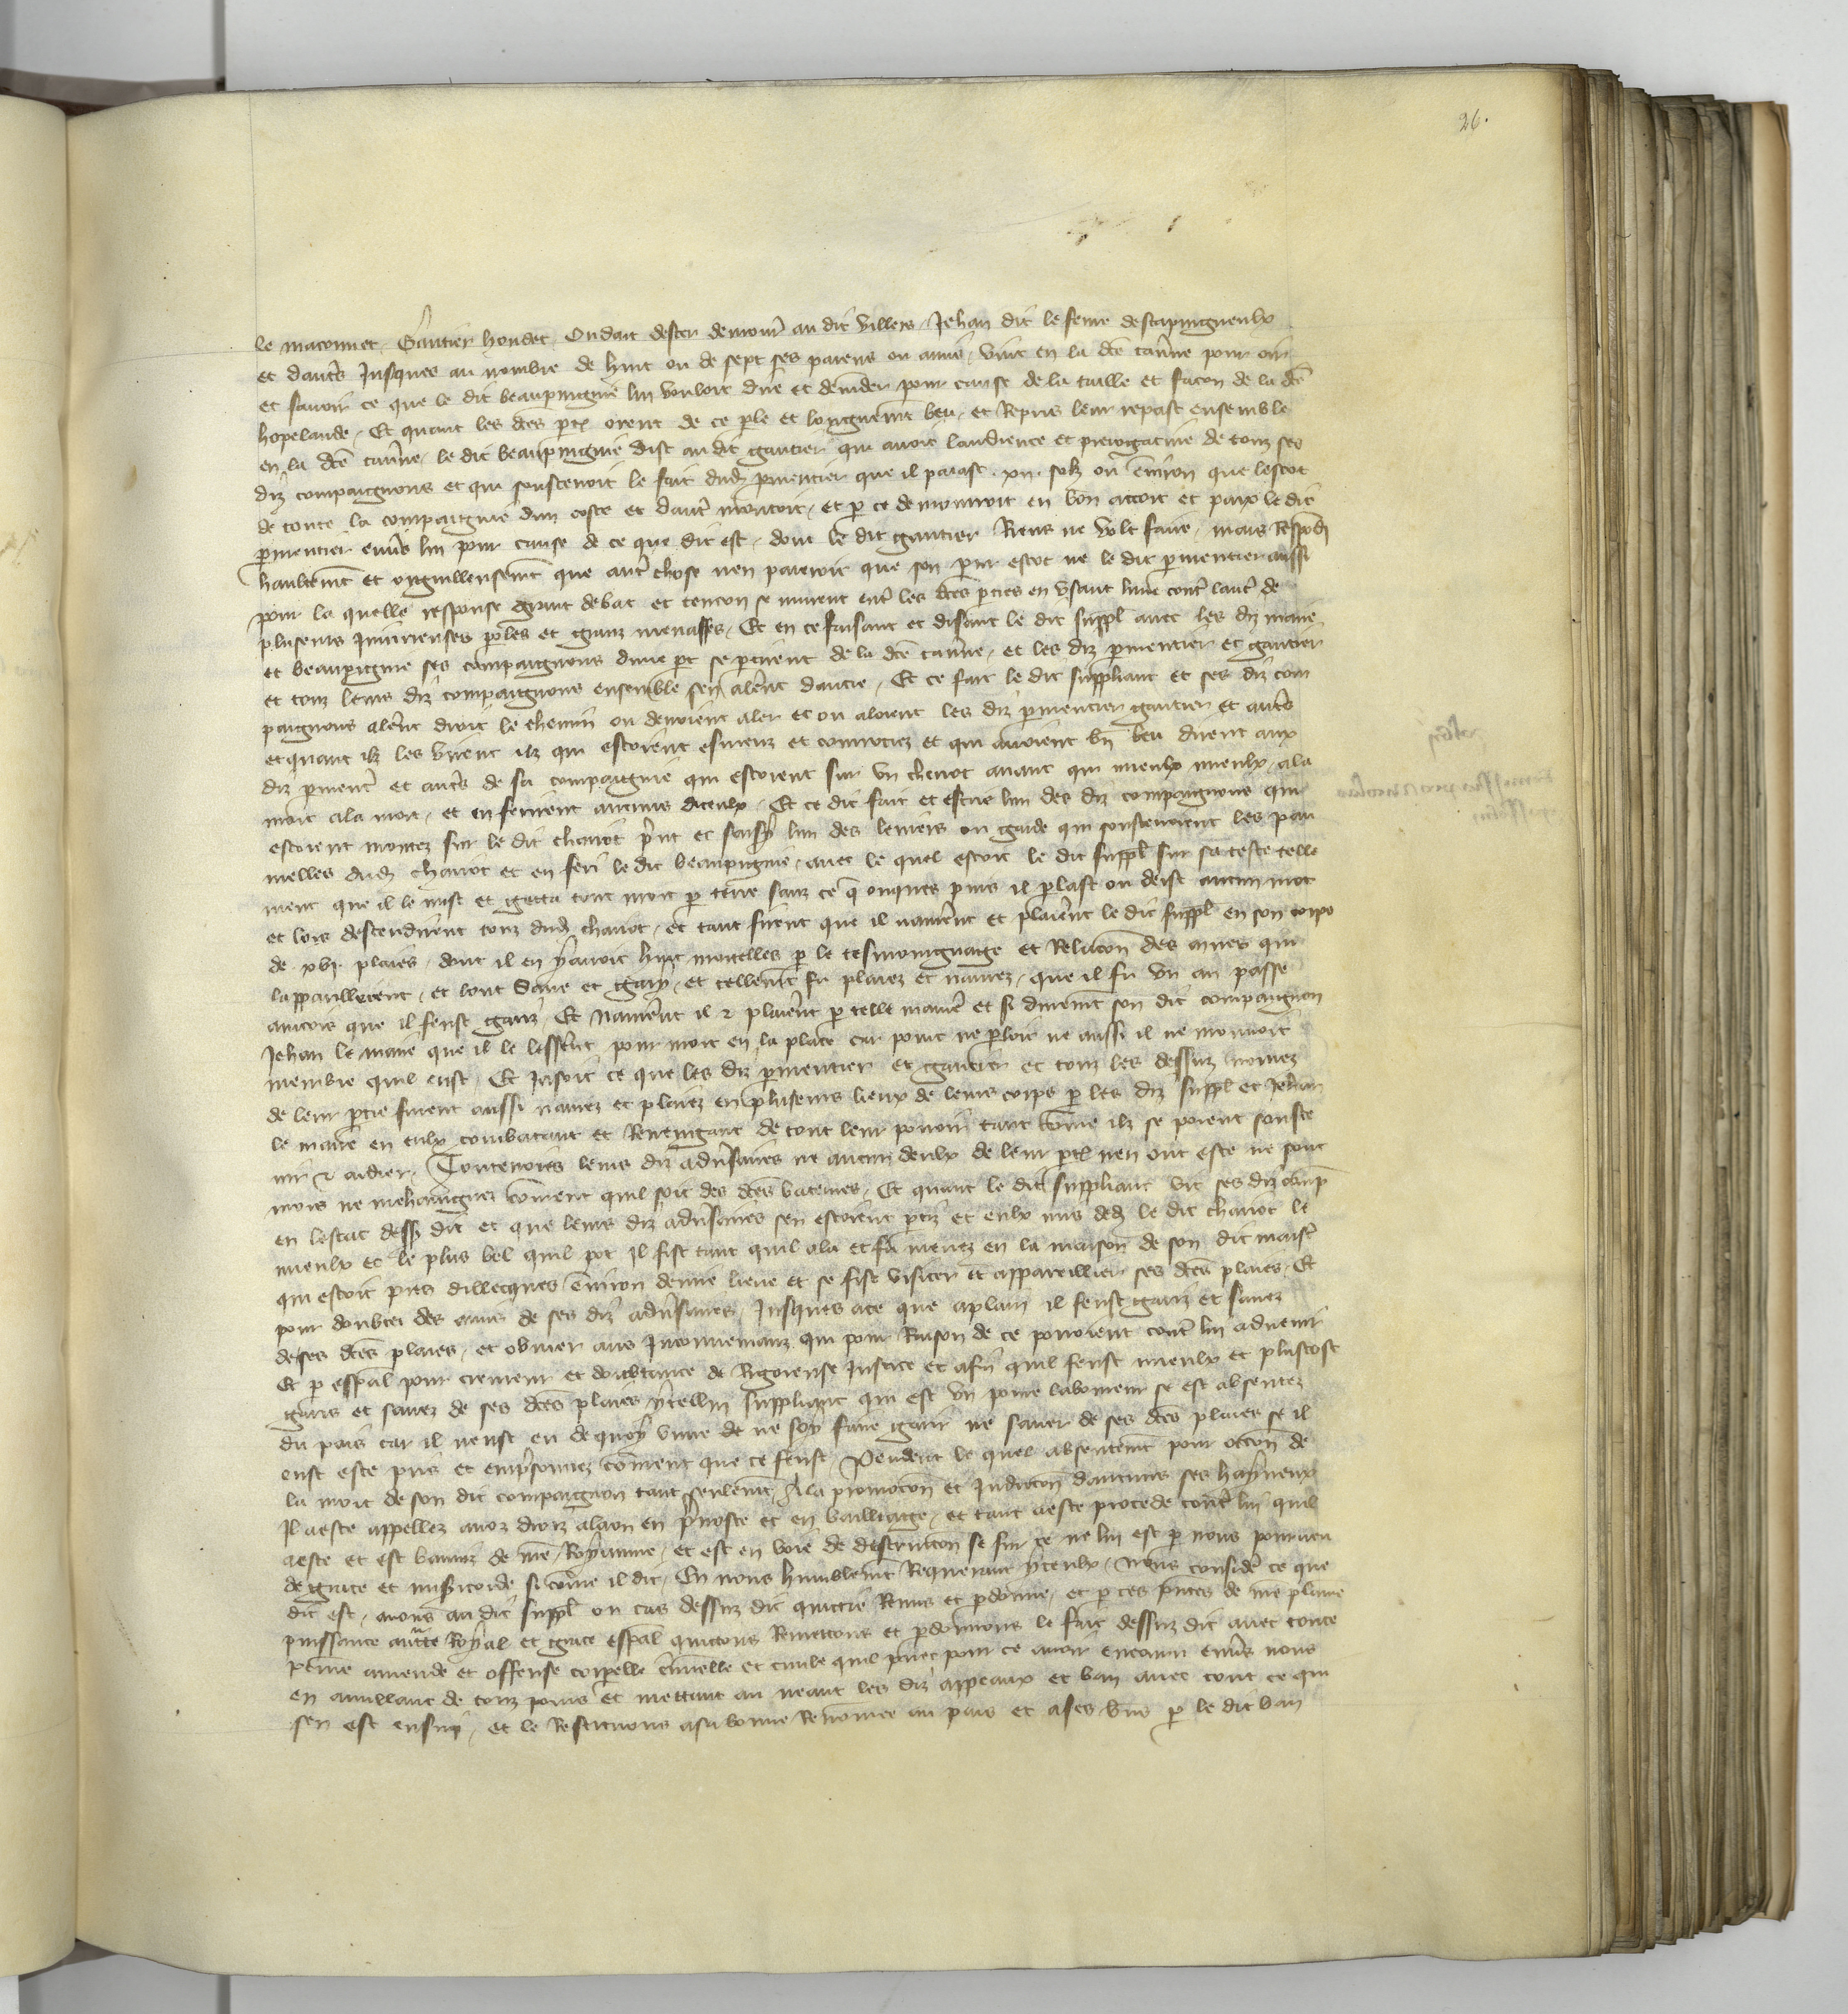 26.
le maconnet, Gautier houdet, Oudart dester demour au dit villers, Jehan dit le feure descapingneulx
et dautres Jusques au nombre de huit ou de sept ses parens ou amis, vint en la dce tauerne pour oir
et sauoir ce que le dit beaupingnie lui vouloit dire et demander pour cause de la taille et facon de la dce
hopelande, Et quant les dces pties orent de ce ple et longuemt beu, et Repris leur repast ensemble
en la dce tauerne, le dit beaupingnie dist au dit gautier qui auoit laudience et prerogatiue de touz ses
diz compaignons et qui soustenoit le fait dudit pmentier que il paiast xii solz ou enuiron que lescot
de toute la compaignie dun coste et dautre montoit, et p ce demouroit en bon accort et paix le dit
pmentier enuers lui pour cause de ce que dit est, dont le dit gautier Riens ne volt faire, mais Respondi
haultemt et orguilleusemt que autre chose nen paieroit que son pmr escot ne le dit pmentier aussi
pour la quelle response grant debat et tencon se murent entre les dces pties en vsant lune contre lautre de
pluseurs Iniurieuses poles et granz menasses, Et en ce faisant et disant le dit suppl auec les diz maire
et beaupingnie ses compaignons dune pt se ptirent de la dce tauerne, et les diz pmentier et gautier
et touz leurs diz compaignons ensemble sen alerent dautre, Et ce fait le dit suppliant et ses diz com
paignons alerent droit le chemin ou deuoient aler et ou aloient les diz pmentier gautier et autres
et quant ilz les virent ilz qui estoient esmeuz et courrociez et qui auoient bn beu dirent aux
diz pmentier et autres de sa compaignie qui estoient sur vn chariot auant qui mieulx mieulx, ala
mort ala mort, et en ferirent aucuns diceulx, Et ce dit fait et estrie lun des diz compaignons qui
estoient montez sur le dit chariot prit et saisy lun des leuiers ou garde qui soustenoient les pau
melles dudit chariot et en feri le dit beaupingnie, auec le quel estoit le dit suppl sur sa teste telle
ment que il le mist et getta tout mort p terre sanz ce q onques puis il plast ou deist aucun mot
et lors descendirent touz dudit chariot, et tant firent que il naurerent et plaierent le dit suppl en son corps
de xvi plaies, dont il en y auoit huit mortelles p le tesmoingnaige et Relacon des mires qui
lappareillierent, et lont Sane et gary, et tellemt fu plaiez et naurez, que il fu vn an passe
aincois que il feust gariz, Et naurerent il & plaierent p telle maniere et si duremt son dit compaignon
Jehan le maire que il le lesserent pour mort en la place car point ne ploit ne aussi il ne mouuoit
membre quil eust, Et Jasoit ce que les diz pmentier et gautier et touz les dessuz nomez
de leur ptie furent aussi naurez et plaiez en pluseurs lieux de leurs corps p les diz suppl et Jehan
le maire en eulx combatant et Reuengant de tout leur pouoir tant come ilz se porent souste
nir & aidier, Touteuoies leurs diz aduersaires ne aucun deulx de leur ptie nen ont este ne sont
mors ne mehaingniez coment quil soit des dces bateures, Et quant le dit suppliant vit ses diz comp
en lestat dessus dit et que leurs diz aduersaires sen estoient ptiz et eulx mis dedens le dit chariot le
mieulx et le plus bel quil pot il fist tant quil ala et fu menez en la maison de son dit maistre
qui estoit pres dillecques enuiron demie lieue et se fist visiter et appareillier ses dces plaies, Et
pour doubte des amis de ses diz aduersaires, Jusques ace que aplain il feust gariz et sanez
de ses dces plaies, et obuier aus Inconuenianz qui pour Raison de ce pouoient contre lui aduenir
Et p espal pour cremeur et doubtance de Rigoreuse Justice et afin quil feust mieulx et plustost
gariz et sanez de ses dces plaies ycellui suppliant qui est vn poure laboureur se est absentez
du pais car il neust eu de quoy viure et ne soy faire garir ne saner de ses dces plaies se il
eust este pris et emprisonnez coment que ce feust, Pendant le quel absentemt pour occon de
la mort de son dit compaignon tant seulemt, Ala promocon et Inducon daucuns ses hayneux
Il aeste appellez anoz droiz alaon en preuoste et en bailliaige, et tant aeste procede contre lui quil
aeste et est banniz de nre Royaume, et est en voie de destruccon se sur ce ne lui est p nous pourueu
de grace et misericorde si come il dit, En nous humblemt Requerant yceulx, Nous consideré ce que
dit est, auons au dit suppl ou cas dessuz dit quittie Remis et pdonne, et p ces pntes de nre plaine
puissance auttte Royal et grace espal quictons Remettons et pdonnons le fait dessuz dit auec toute
peine amende et offense corpelle criminelle et ciuile quil puet pour ce auoir encouru enuers nous
en anullant de touz poins et mettant au neant les diz appeaux et ban auec tout ce qui
sen est ensuy, et le Restituons asa bonne Renomee au pais et ases biens p le dit ban